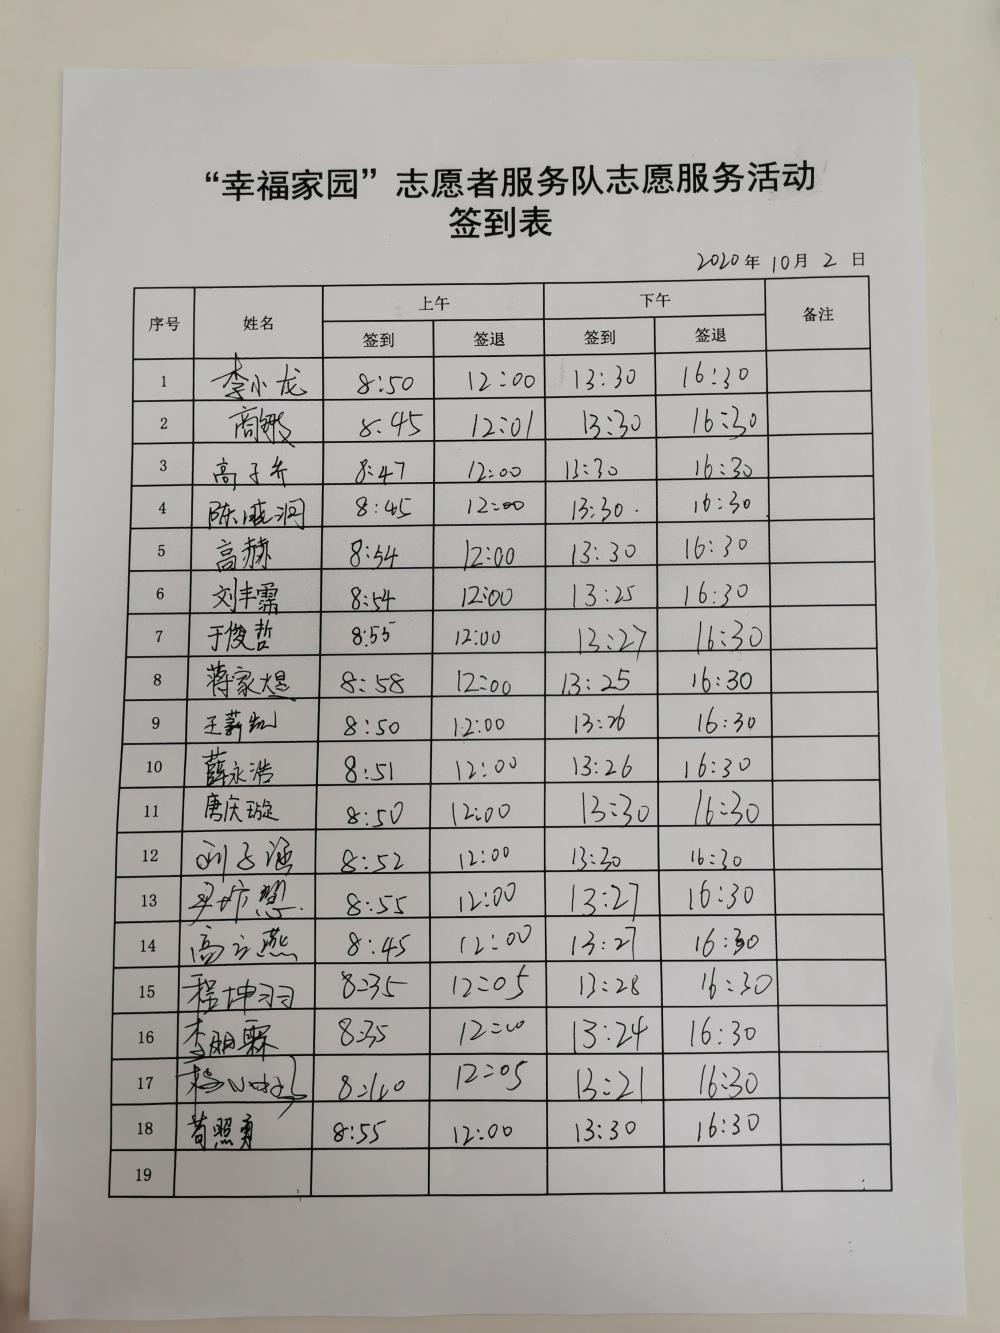 “幸福家园”志愿者服务队志愿服务活动
签到表
2020年10月2日
序号 姓名 上午 下午 备注
签到 签退 签到 签退
1 李小龙 8:50 12:00 13:30 16:30
2 8:45 12:01 13:30 16:30
3 高子乔 8:47 12:00 13:30 16:30
4 陈晓润 8:45 12:00 13:30 16:30
5 高赫 8:54 12:00 13:30 16:30
6 刘丰霈 8:54 12:00 13:25 16:30
7 于俊哲 8:55 12:00 13:27 16:30
8 蒋家煜 8:58 12:00 13:25 16:30
9 王薪凯 8:50 12:00 13:26 16:30
10 薛永浩 8:51 12:00 13:26 16:30
11 唐庆璇 8:50 12:00 13:30 16:30
12 刘子涵 8:52 12:00 13:30 16:30
13 8:55 12:00 13:27 16:30
14 高立燕 8:45 12:00 13:27 16:30
15 程坤羽 8:35 12:05 13:28 16:30
16 李明霖 8:35 12:00 13:24 16:30
17 8:40 12:05 13:21 16:30
18 苟照勇 8:55 12:00 13:30 16:30
19